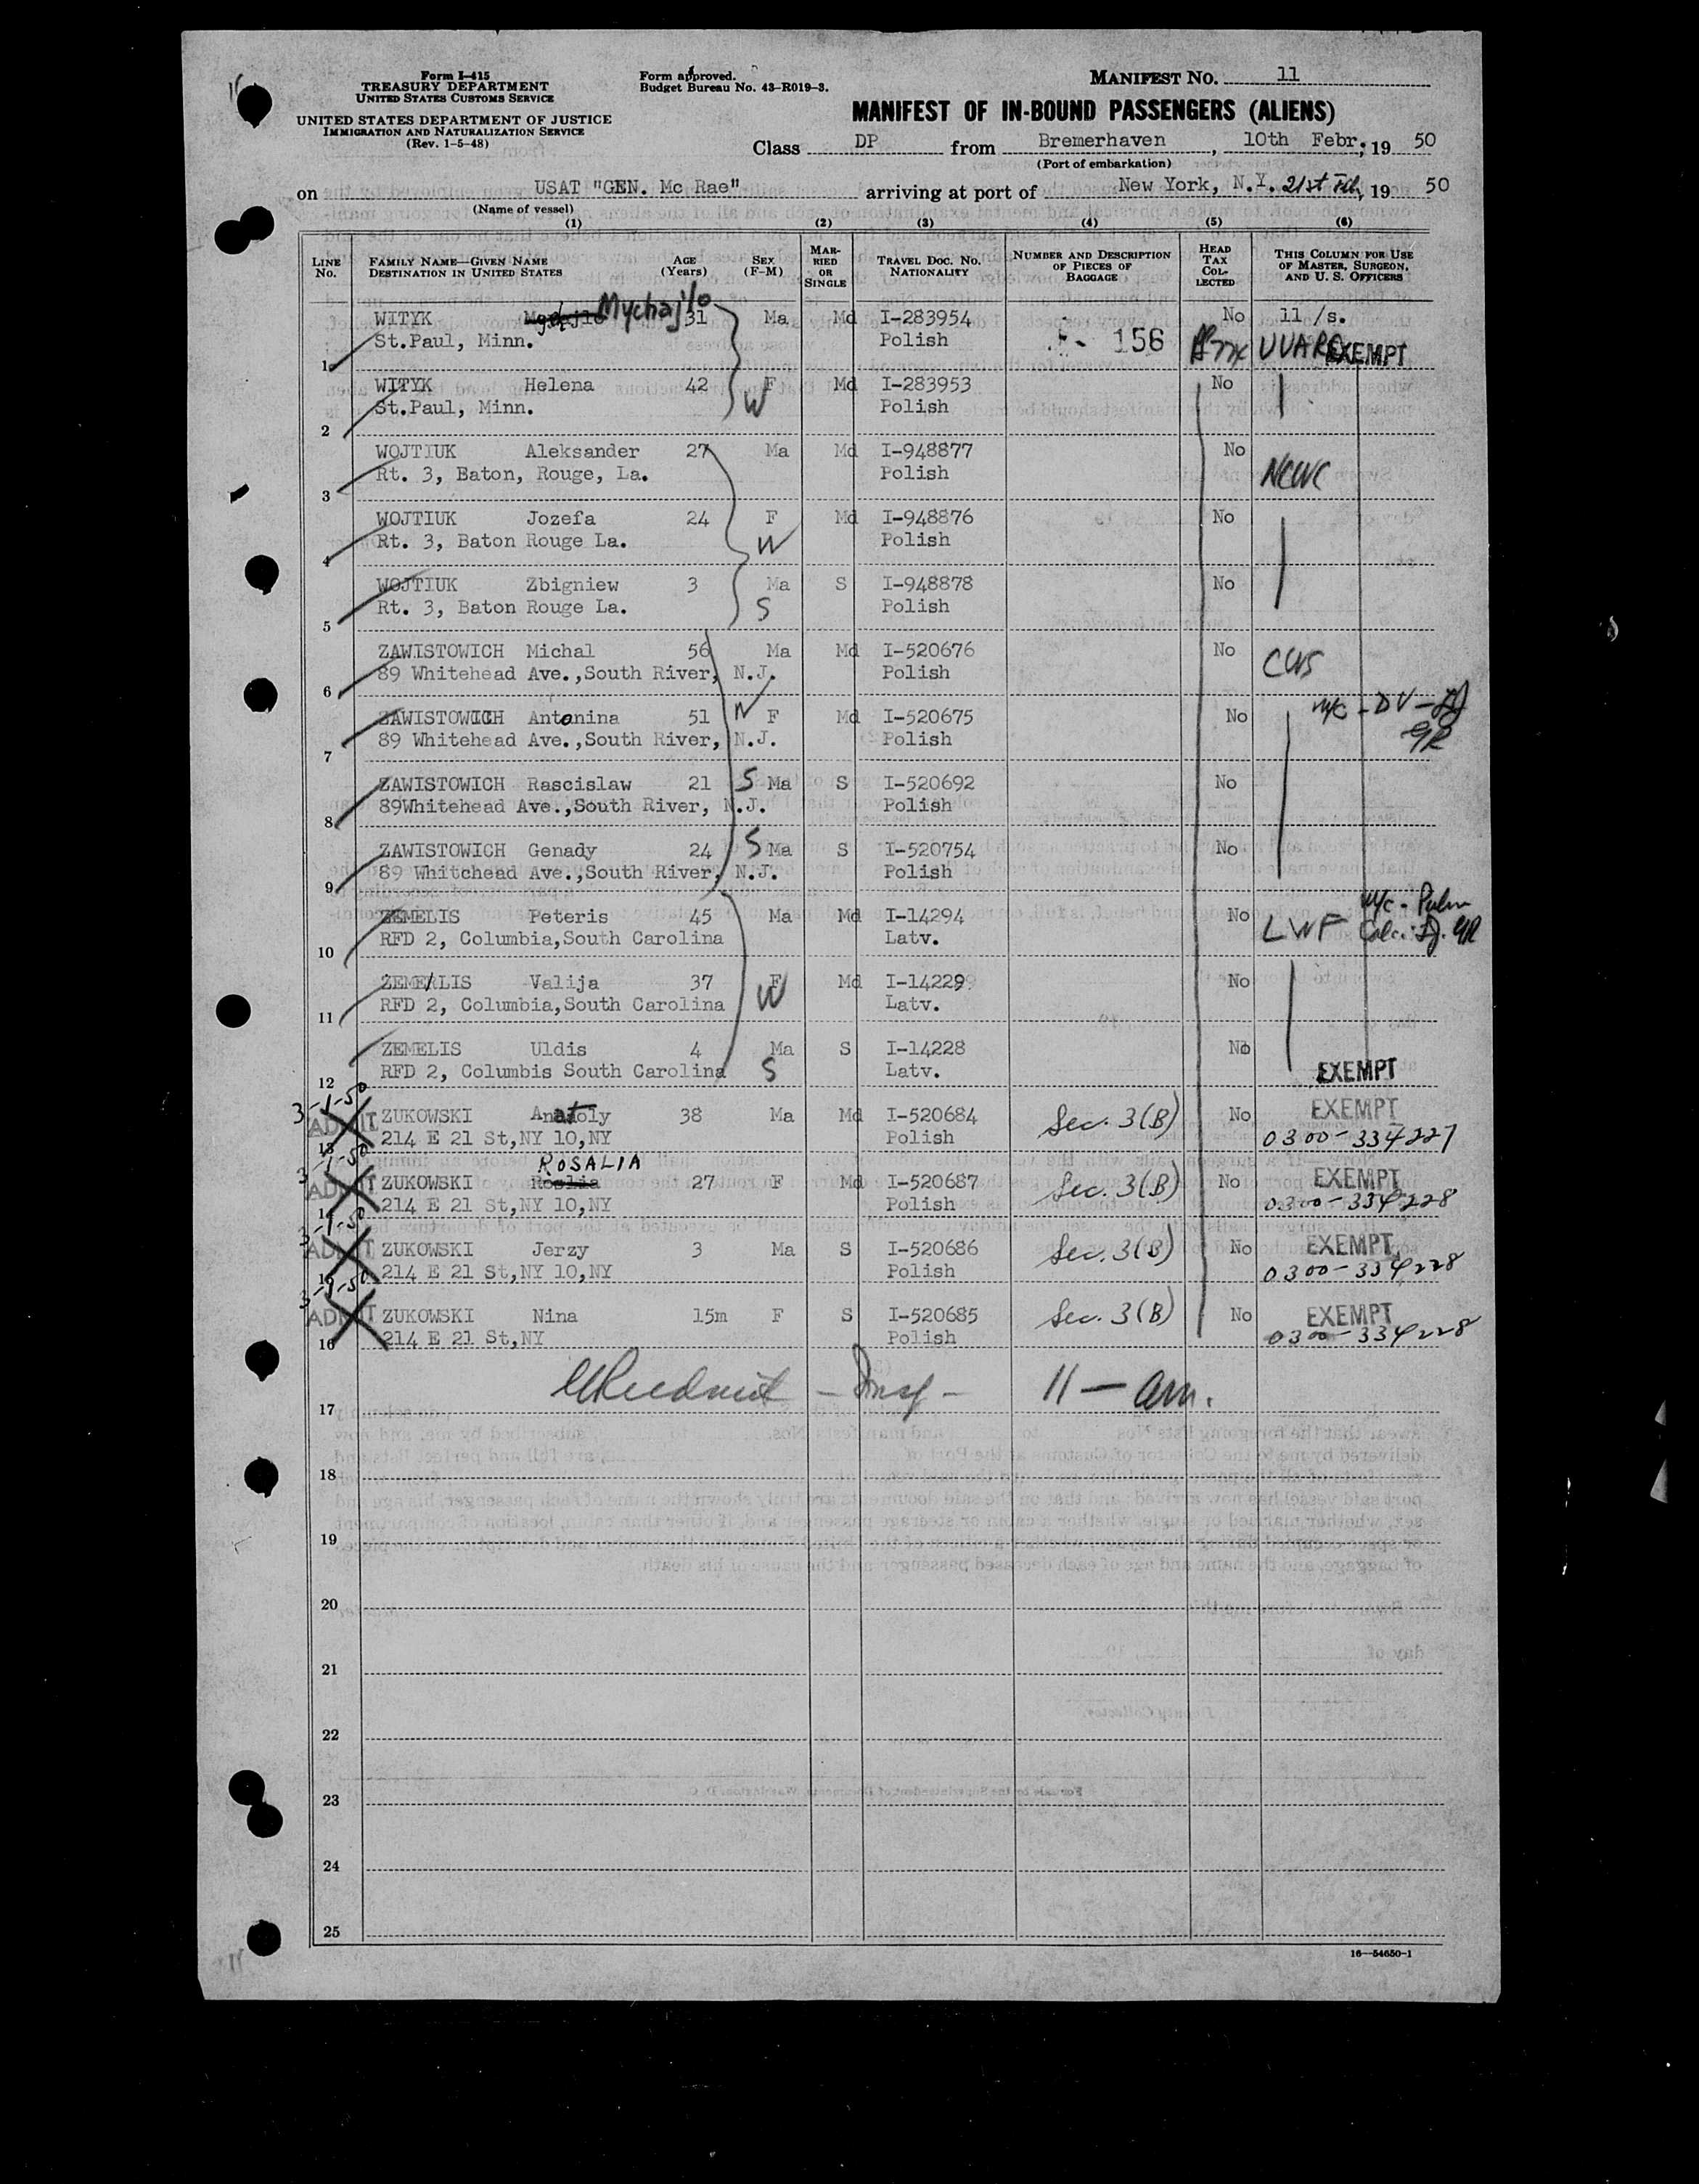 Form I-415
TREASURY DEPARTMENT
UNITED STATES CUSTOMS SERVICE
UNITED STATES DEPARTMENT OF JUSTICE
IMMIGRATION AND NATURALIZATION SERVICE
(Rev. 1-5-48)
Form approved.
Budget Bureau No. 43-R019-3.
MANIFEST NO. 11
MANIFEST OF IN-BOUND PASSENGERS (ALIENS)
Class DP from Bremerhaven, 10th Febr; 19 50
(Port of embarkation)
on USAT "GEN. Mc Rae" arriving at port of New York, N.Y. 21st Feb, 19 50
(Name of vessel)
(1) (2) (3) (4) (5) (6)
LINE No. FAMILY NAME—GIVEN NAME DESTINATION IN UNITED STATES AGE (Years) SEX (F-M) MARRIED OR SINGLE TRAVEL DOC. NO. NATIONALITY NUMBER AND DESCRIPTION OF PIECES OF BAGGAGE HEAD TAX COLLECTED THIS COLUMN FOR USE OF MASTER, SURGEON, AND U. S. OFFICERS
WITYK Mychajlo 31 Ma Md I-283954 No 11 /s.
1 St.Paul, Minn. Polish 156 EXEMPT
WITYK Helena 42 F Md I-283953 No
2 St.Paul, Minn. W Polish
WOJTIUK Aleksander 27 Ma Md I-948877 No
3 Rt. 3, Baton, Rouge, La. Polish NCWC
WOJTIUK Jozefa 24 F Md I-948876 No
4 Rt. 3, Baton Rouge La. W Polish
WOJTIUK Zbigniew 3 Ma S I-948878 No
5 Rt. 3, Baton Rouge La. S Polish
ZAWISTOWICH Michal 56 Ma Md I-520676 No
6 89 Whitehead Ave.,South River, N.J. Polish CWS
ZAWISTOWICH Antonina 51 W F Md I-520675 No M/C - DV -
7 89 Whitehead Ave.,South River, N.J. Polish GR
ZAWISTOWICH Rascislaw 21 S Ma S I-520692 No
8 89Whitehead Ave.,South River, N.J. Polish
ZAWISTOWICH Genady 24 S Ma S I-520754 No
9 89 Whitchead Ave.,South River, N.J. Polish
ZEMELIS Peteris 45 Ma Md I-14294 No LWF M/C - Pulm
10 RFD 2, Columbia,South Carolina Latv. GR
ZEMERLIS Valija 37 F Md I-14229 No
11 RFD 2, Columbia,South Carolina W Latv.
ZEMELIS Uldis 4 Ma S I-14228 No
12 RFD 2, Columbis South Carolina S Latv. EXEMPT
3-1-50
ADMIT ZUKOWSKI Anatoly 38 Ma Md I-520684 Sec. 3(B) No EXEMPT
13 214 E 21 St,NY 10,NY Polish 0300-334227
3-1-50 ROSALIA
ADMIT ZUKOWSKI Roslia 27 F Md I-520687 Sec. 3(B) No EXEMPT
14 214 E 21 St,NY 10,NY Polish 0300-334228
3-1-50
ADMIT ZUKOWSKI Jerzy 3 Ma S I-520686 Sec. 3(B) No EXEMPT
15 214 E 21 St,NY 10,NY Polish 0300-334228
3-1-50
ADMIT ZUKOWSKI Nina 15m F S I-520685 Sec. 3(B) No EXEMPT
16 214 E 21 St,NY Polish 0300-334228
17 Insp - 11 — am.
18
19
20
21
22
23
24
25
16—54650-1